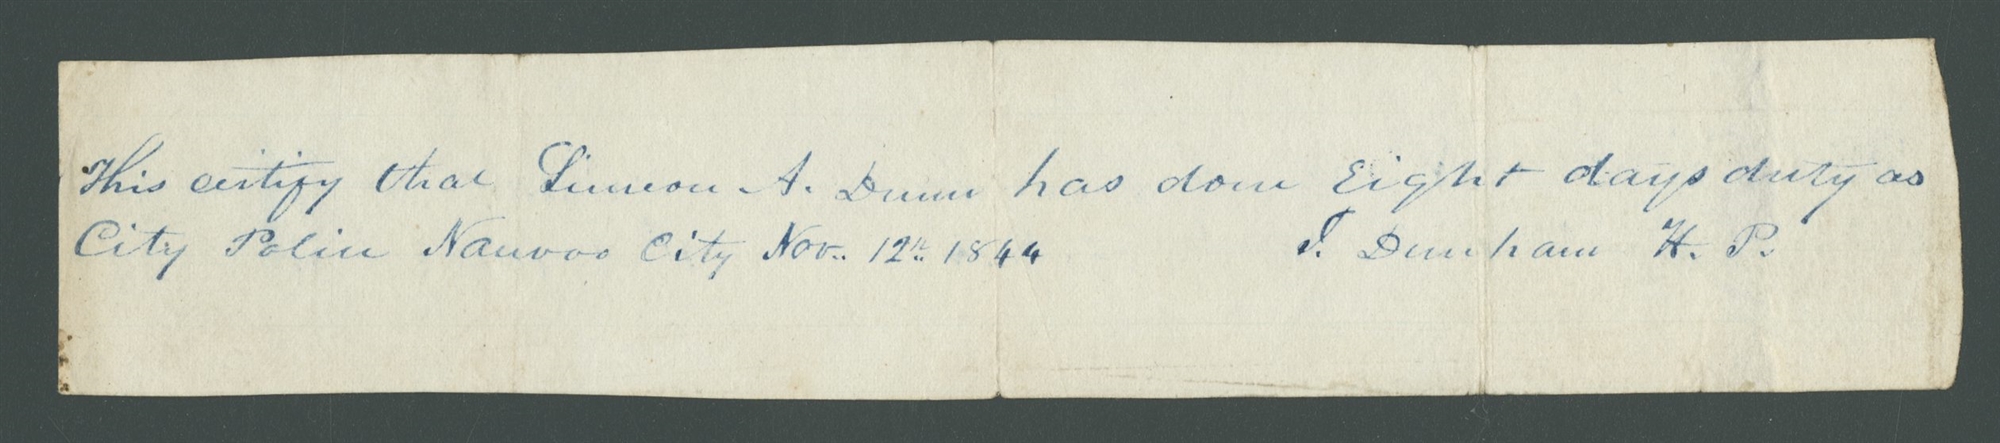 This certify that Simeon A. Dunn has done Eight days duty as
City Police Nauvoo City Nov. 12th 1844 J. Dunham H. P.